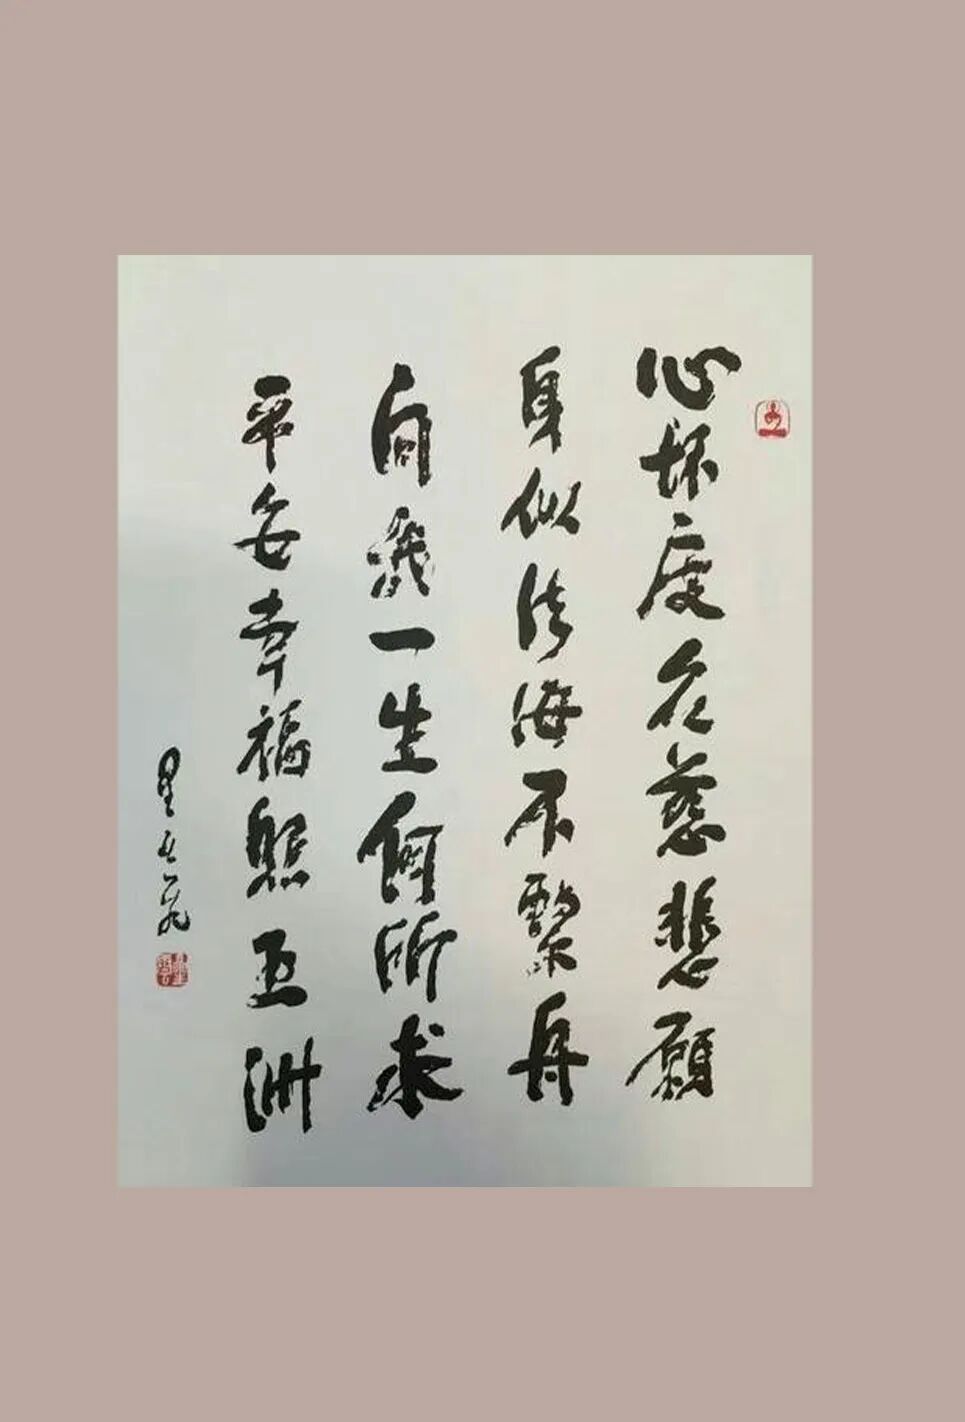 心怀度众慈悲願
身似法海不繫舟
问我一生何所求
平安幸福照五洲
星云